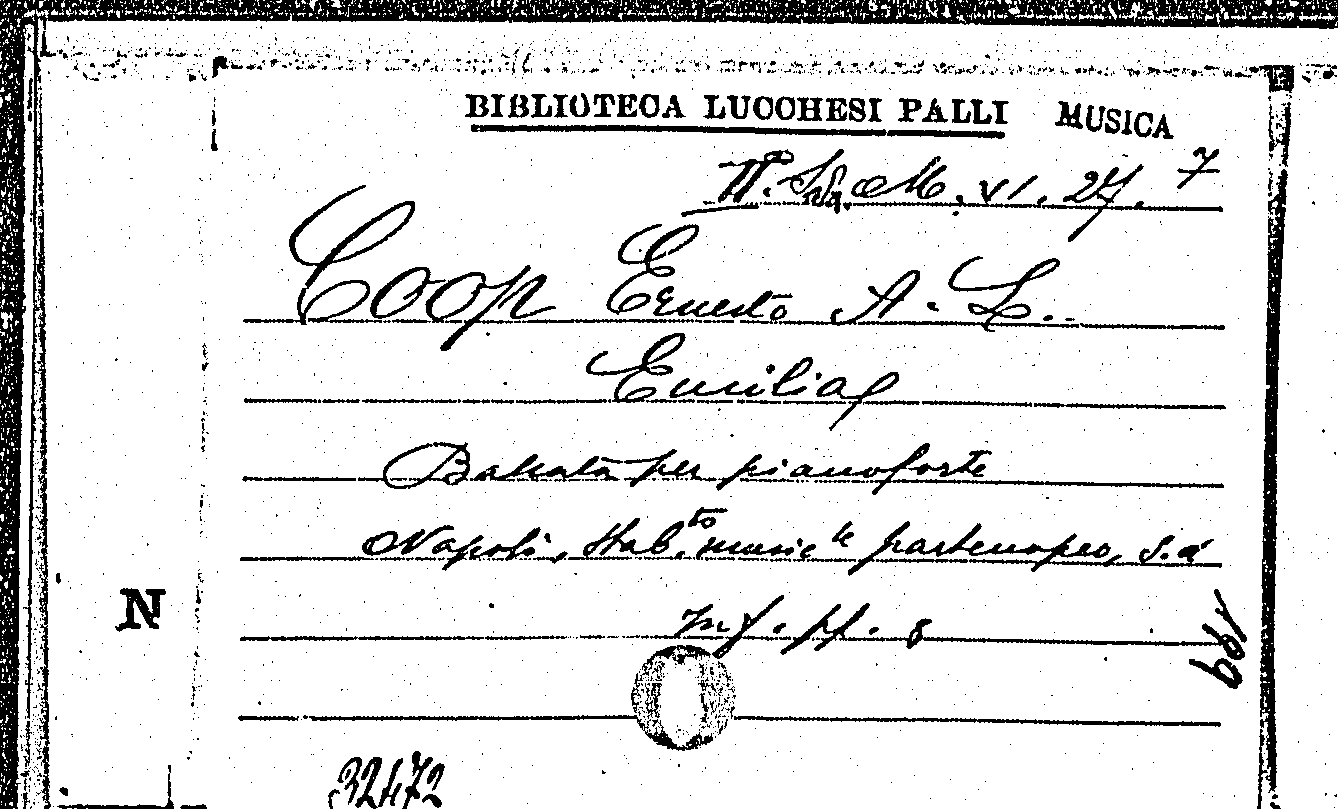 BIBLIOTECA LUCCHESI PALLI MUSICA
II. Sda. M. VI. 27. 7
Coop Ernesto A. L.
Emilia
Ballata per pianoforte
Napoli, Stab.to music.le partenopeo, s.a
in f. pp. 8
N
199
32472